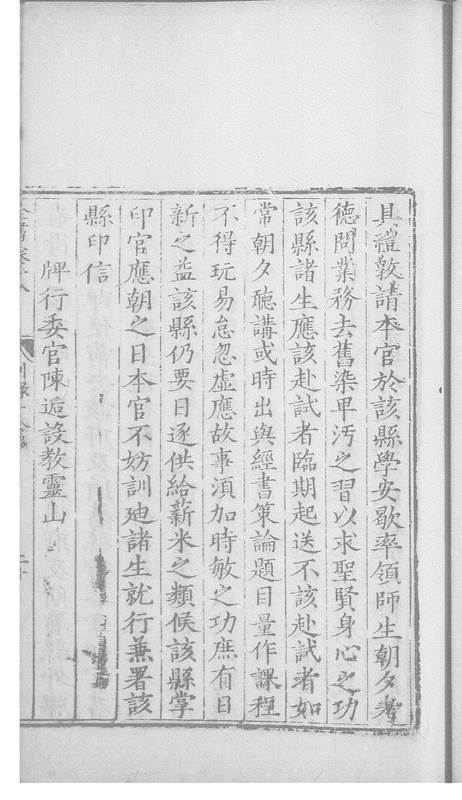 具禮敦請本官於該縣學安歇率領師生朝夕考
德問業務去舊染卑汚之習以求聖賢身心之功
該縣諸生應該赴試者臨期起送不該赴試者如
常朝夕聽講或時出與經書策論題目量作課程
不得玩易怠忽虛應故事湏加時敏之功庶有日
新之益該縣仍要日逐供給薪米之類候該縣掌
印官應朝之日本官不妨訓廸諸生就行兼署該
縣印信
牌行委官陳逅設教靈山